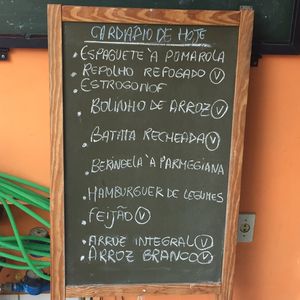 CARDÁPIO DE HOJE
. ESPAGUETE À POMAROLA
. REPOLHO REFOGADO (V)
. ESTROGONOF
. BOLINHO DE ARROZ (V)
. BATATA RECHEADA (V)
. BERINGELA À PARMEGGIANA
. HAMBURGUER DE LEGUMES
. FEIJÃO (V)
. ARROZ INTEGRAL (V)
. ARROZ BRANCO (V)